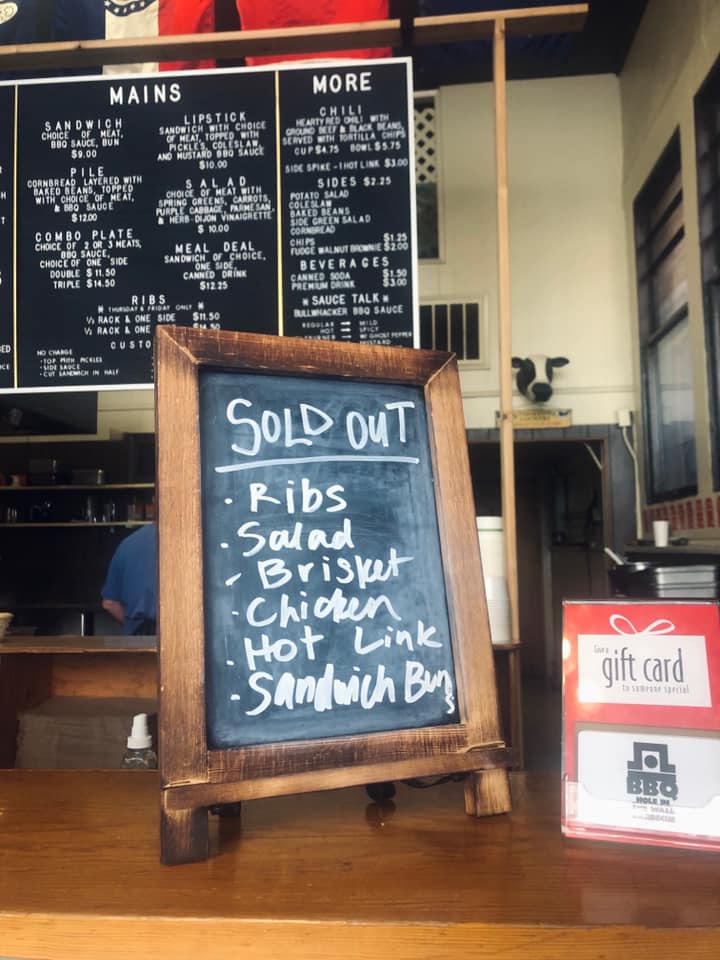 MAINS
SANDWICH
CHOICE OF MEAT,
BBQ SAUCE, BUN
$9.00
PILE
CORNBREAD LAYERED WITH
BAKED BEANS, TOPPED
WITH CHOICE OF MEAT,
& BBQ SAUCE
$12.00
COMBO PLATE
CHOICE OF 2 OR 3 MEATS,
BBQ SAUCE,
CHOICE OF ONE SIDE
DOUBLE $11.50
TRIPLE $14.50
LIPSTICK
SANDWICH WITH CHOICE
OF MEAT, TOPPED WITH
PICKLES, COLESLAW,
AND MUSTARD BBQ SAUCE
$10.00
SALAD
CHOICE OF MEAT WITH
SPRING GREENS, CARROTS,
PURPLE CABBAGE, PARMESAN,
& HERB-DIJON VINAIGRETTE
$10.00
MEAL DEAL
SANDWICH OF CHOICE,
ONE SIDE,
CANNED DRINK
$12.25
RIBS
* THURSDAY & FRIDAY ONLY *
1/3 RACK & ONE SIDE $11.50
1/2 RACK & ONE
CUSTO
NO CHARGE
-TOP WITH PICKLES
-SIDE SAUCE
-CUT SANDWICH IN HALF
MORE
CHILI
HEARTY RED CHILI WITH
GROUND BEEF & BLACK BEANS,
SERVED WITH TORTILLA CHIPS
CUP $4.75 BOWL $5.75
SIDE SPIKE - 1 HOT LINK $3.00
SIDES $2.25
POTATO SALAD
COLESLAW
BAKED BEANS
SIDE GREEN SALAD
CORNBREAD
CHIPS $1.25
FUDGE WALNUT BROWNIE $2.00
BEVERAGES
CANNED SODA $1.50
PREMIUM DRINK $3.00
* SAUCE TALK *
BULLWHACKER BBQ SAUCE
REGULAR → MILD
HOT → SPICY
W/ GHOST PEPPER
MUSTARD
SOLD OUT
· Ribs
· Salad
- Brisket
· Chicken
· Hot Link
· Sandwich Buns
Give a
gift card
to someone special
BBQ
HOLE IN
THE WALL